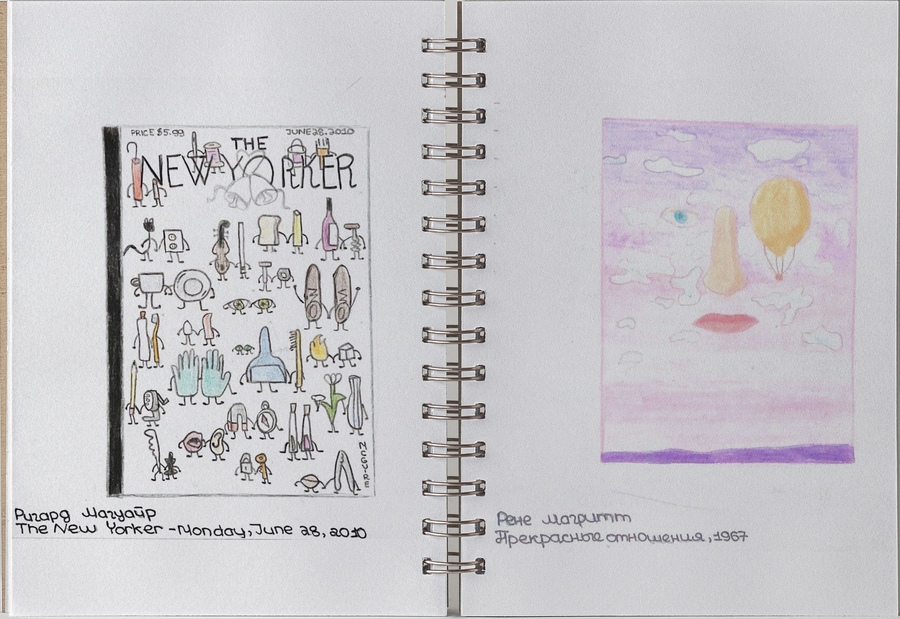 PRICE $5.99
JUNE 28, 2010
THE
NEW YORKER
Ричард Магуайр
The New Yorker - Monday, June 28, 2010
Рене Магритт
Прекрасные отношения, 1967